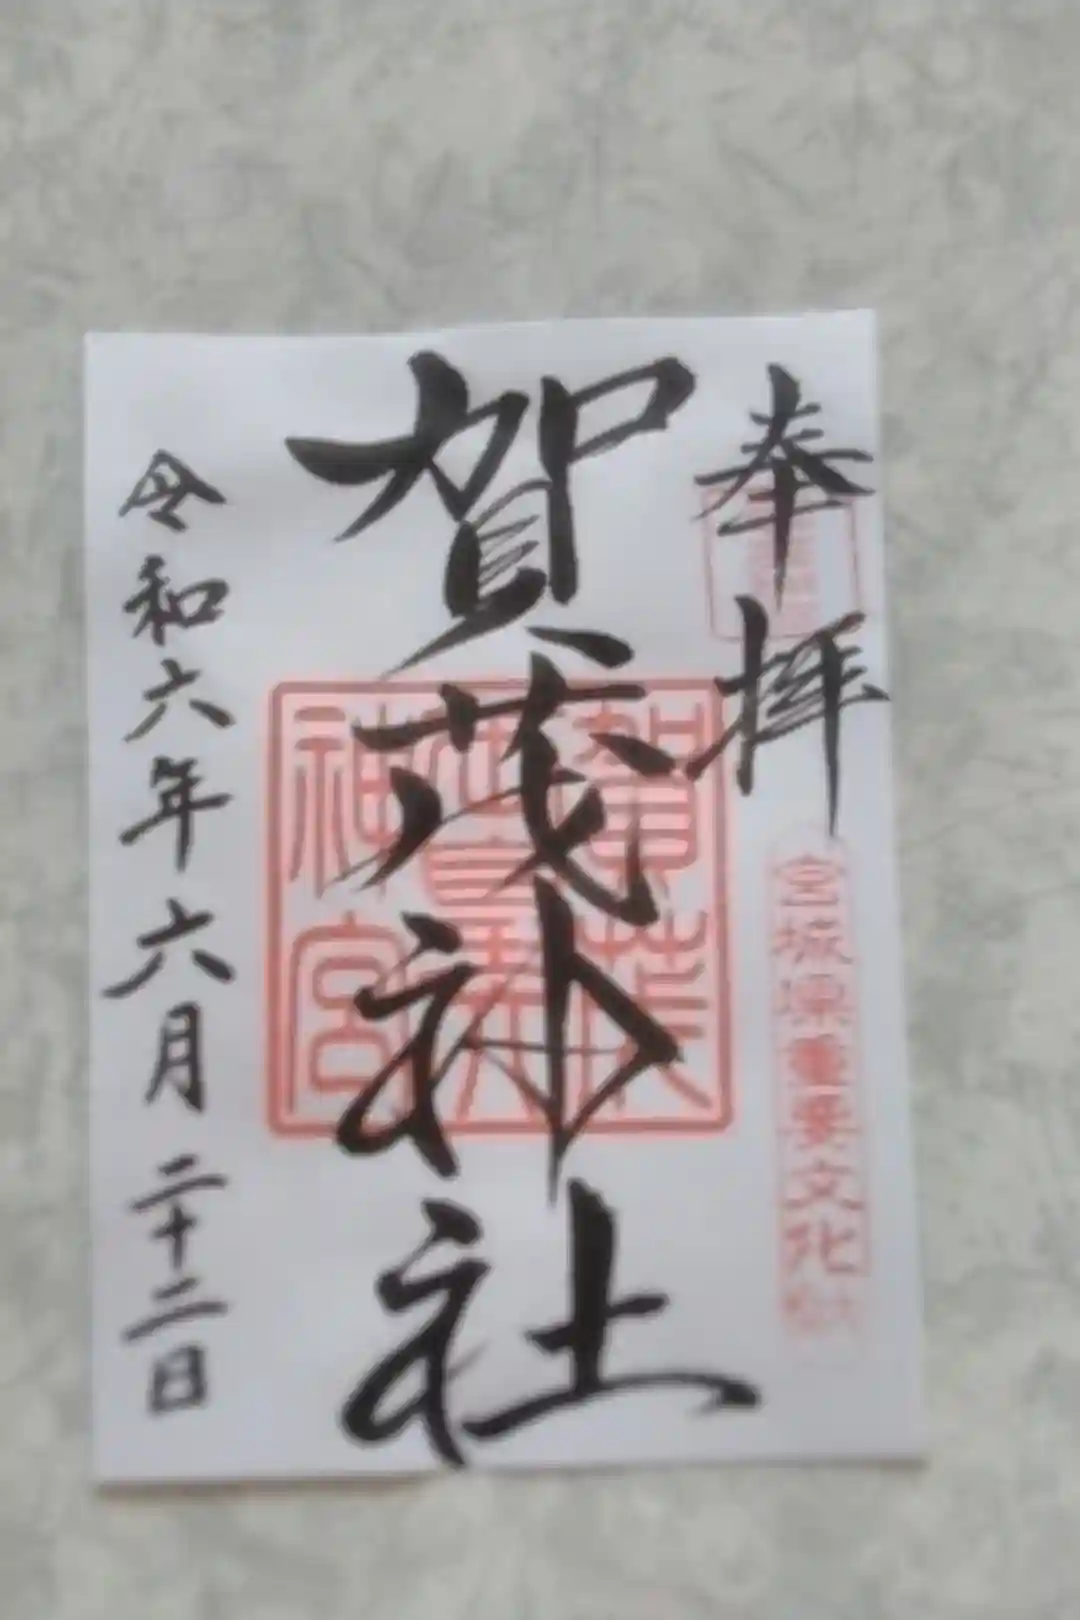 奉拝
宮城県重要文化財
賀茂神社
賀茂
神宮
令和六年六月二十二日